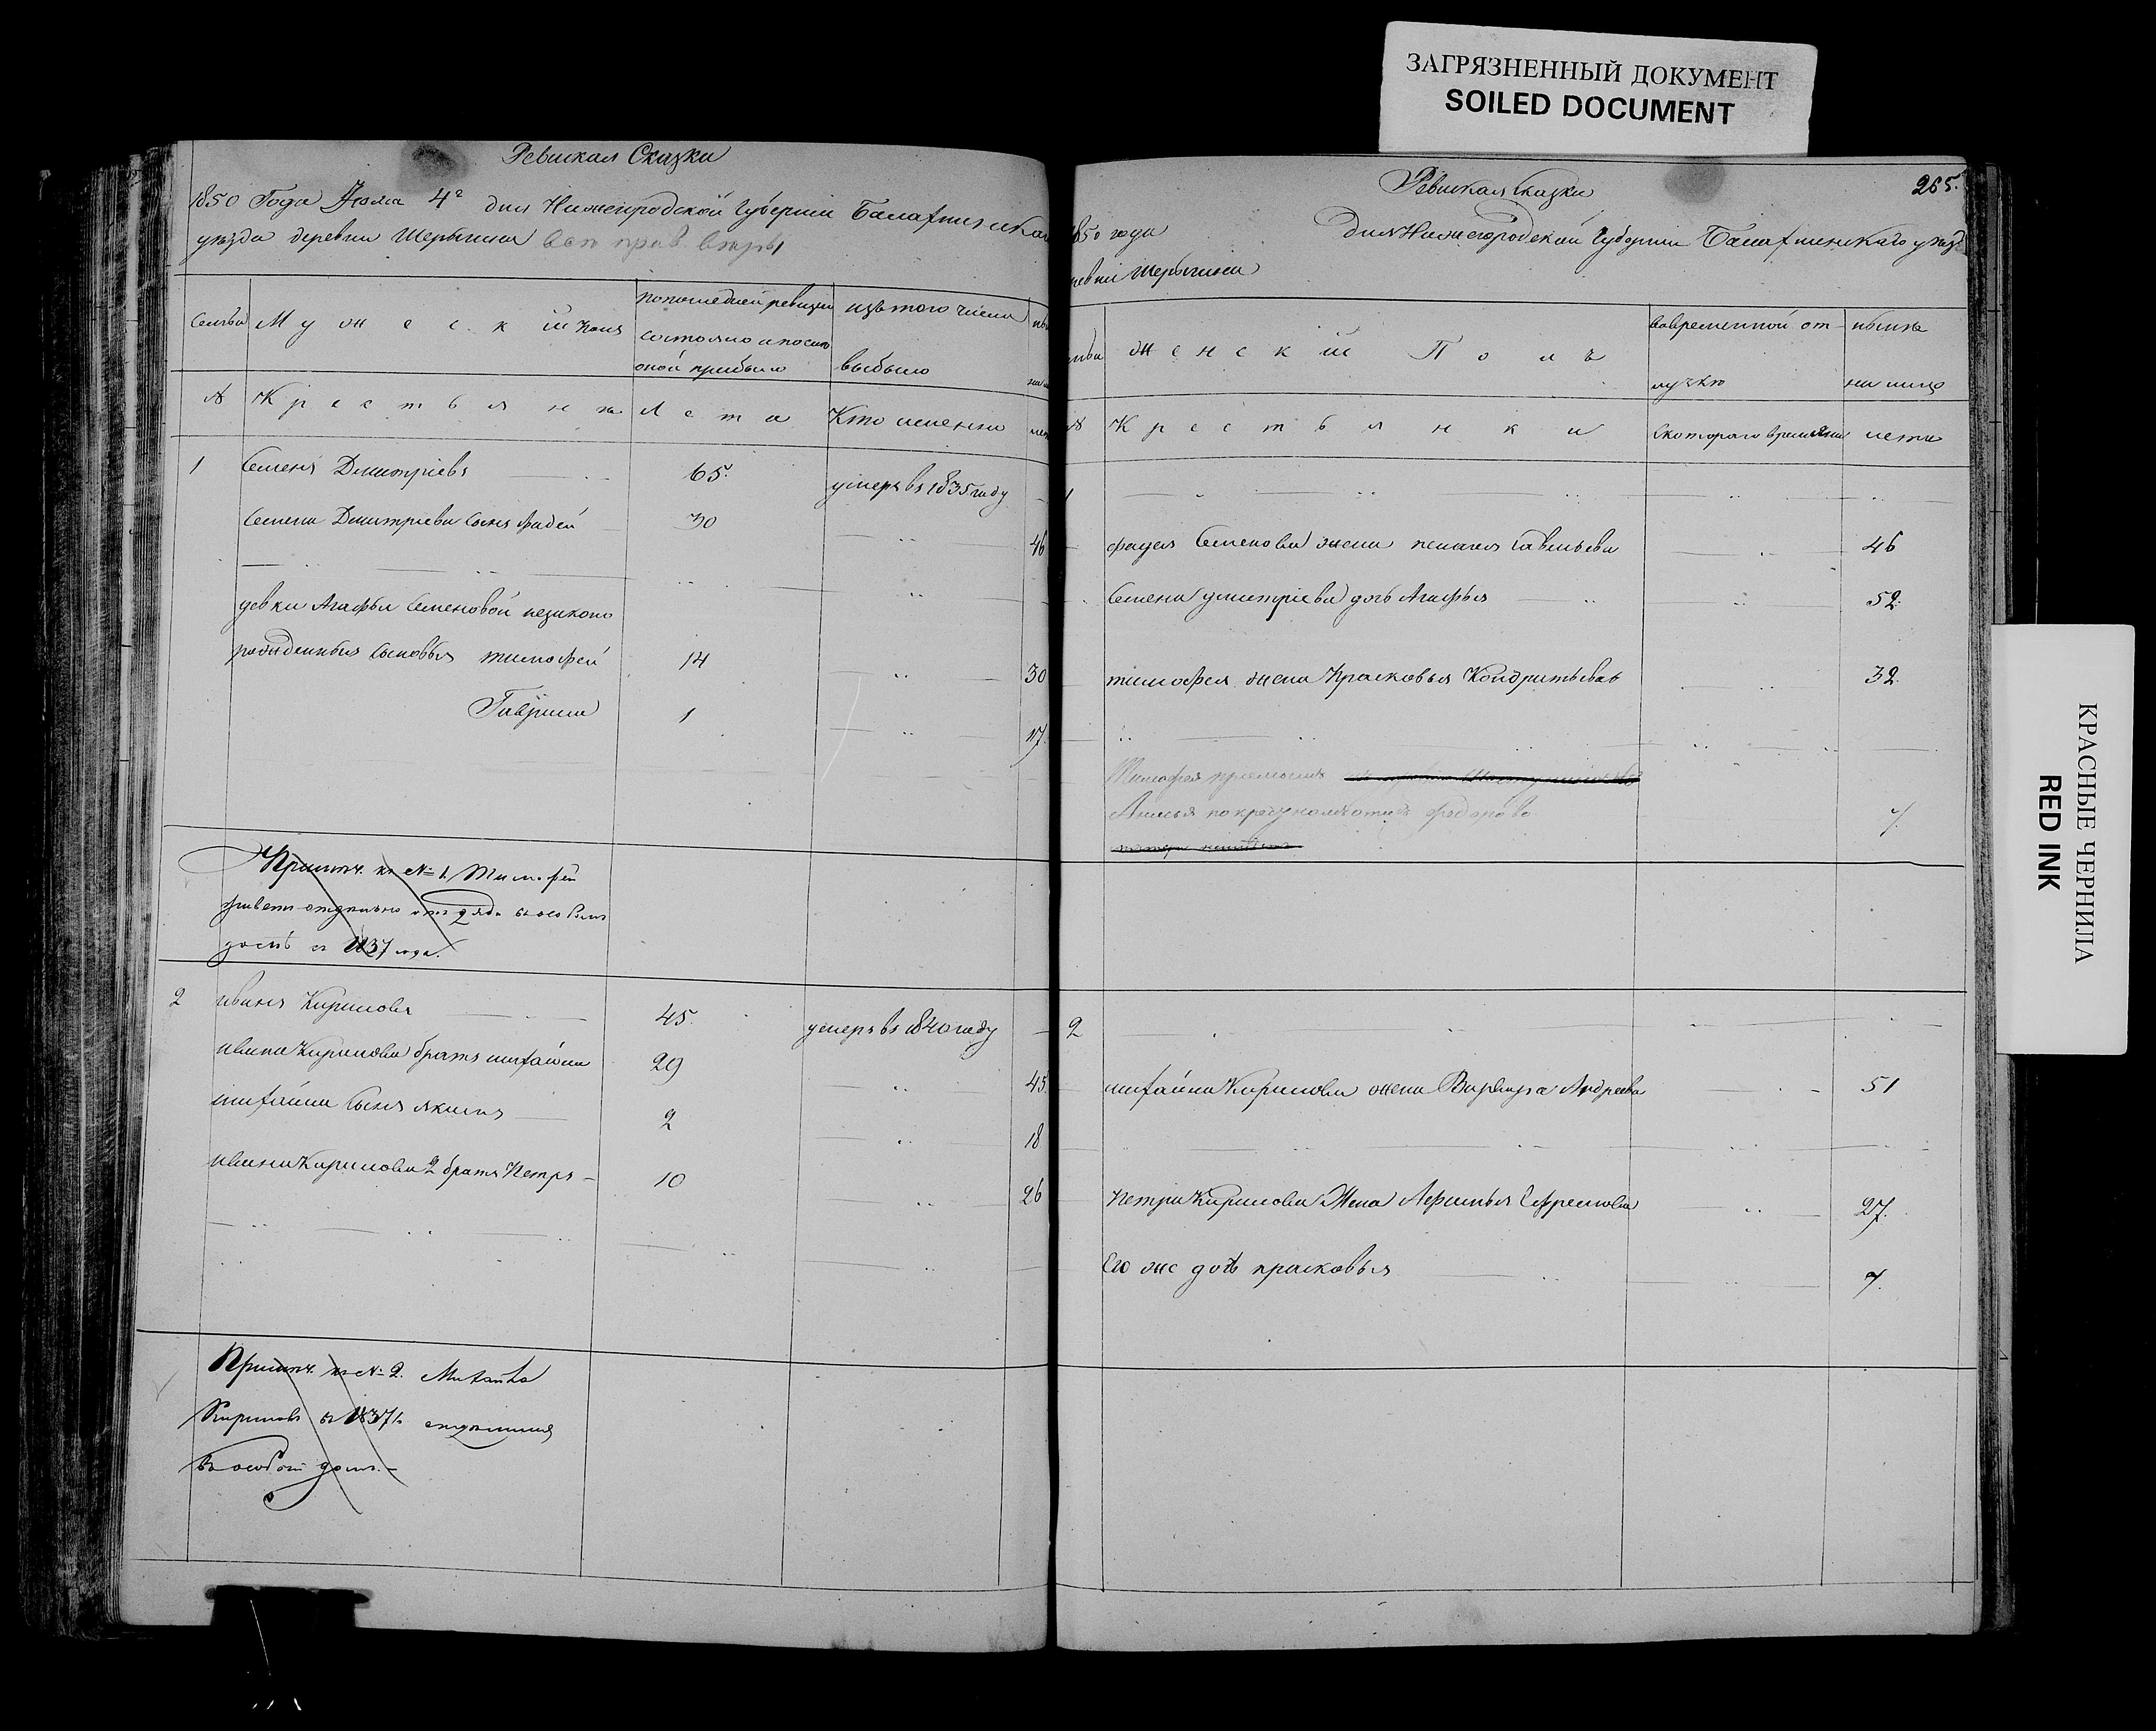 ЗАГРЯЗНЕННЫЙ ДОКУМЕНТ
SOILED DOCUMENT
Ревиская Сказки
1850 Года Июля 4го дня Нижегородской Губернии Балахнинска
уезда деревни Щербинина
Семьи
Мужеский Полъ
По последней ревизии состояло и после оной прибыло
изъ того числа выбыло
№
Крестьяне
Лета
Кто именно
1 Семенъ Дмитріевъ 65. умеръ въ 1835 году
Семена Дмитріева Сынъ Фадей 30 46
девки Агафьи Семеновой незаконо
рожденныя Сыновья тимофей 14 30
Гаврила 1 17
Примеч. къ № 1. Тимофей
1837 года.
2 иванъ Кириловъ 45. умеръ въ 1840 году
ивана Кирилова братъ михайла 29 45.
михайлы Сынъ якимъ 2 18
ивана Кирилова 2 братъ Петръ 10 26
Примеч. къ № 2. Михайло
Кириловъ въ 1837 г. отделился
въ особой домъ.
Ревиская Сказки
265.
1850 года Дня Нижегородской Губернии Балахнинскаго уезд
ревни Щербинина
женский Полъ
во временной отлучке
ныне на лицо
№
Крестьянки
Скоторого времяни
лета
1
Фадея Семенова жена пелагея Савельева 46
Семена дмитріева дочь Агафья 52.
тимофея жена Прасковья Кондратьева 32.
Тимофея
7.
2
михайлы Кирилова жена Варвара Андреева 51
Петра Кирилова Жена Афимья Ефремова 27.
Его же дочь прасковья 7.
КРАСНЫЕ ЧЕРНИЛА
RED INK